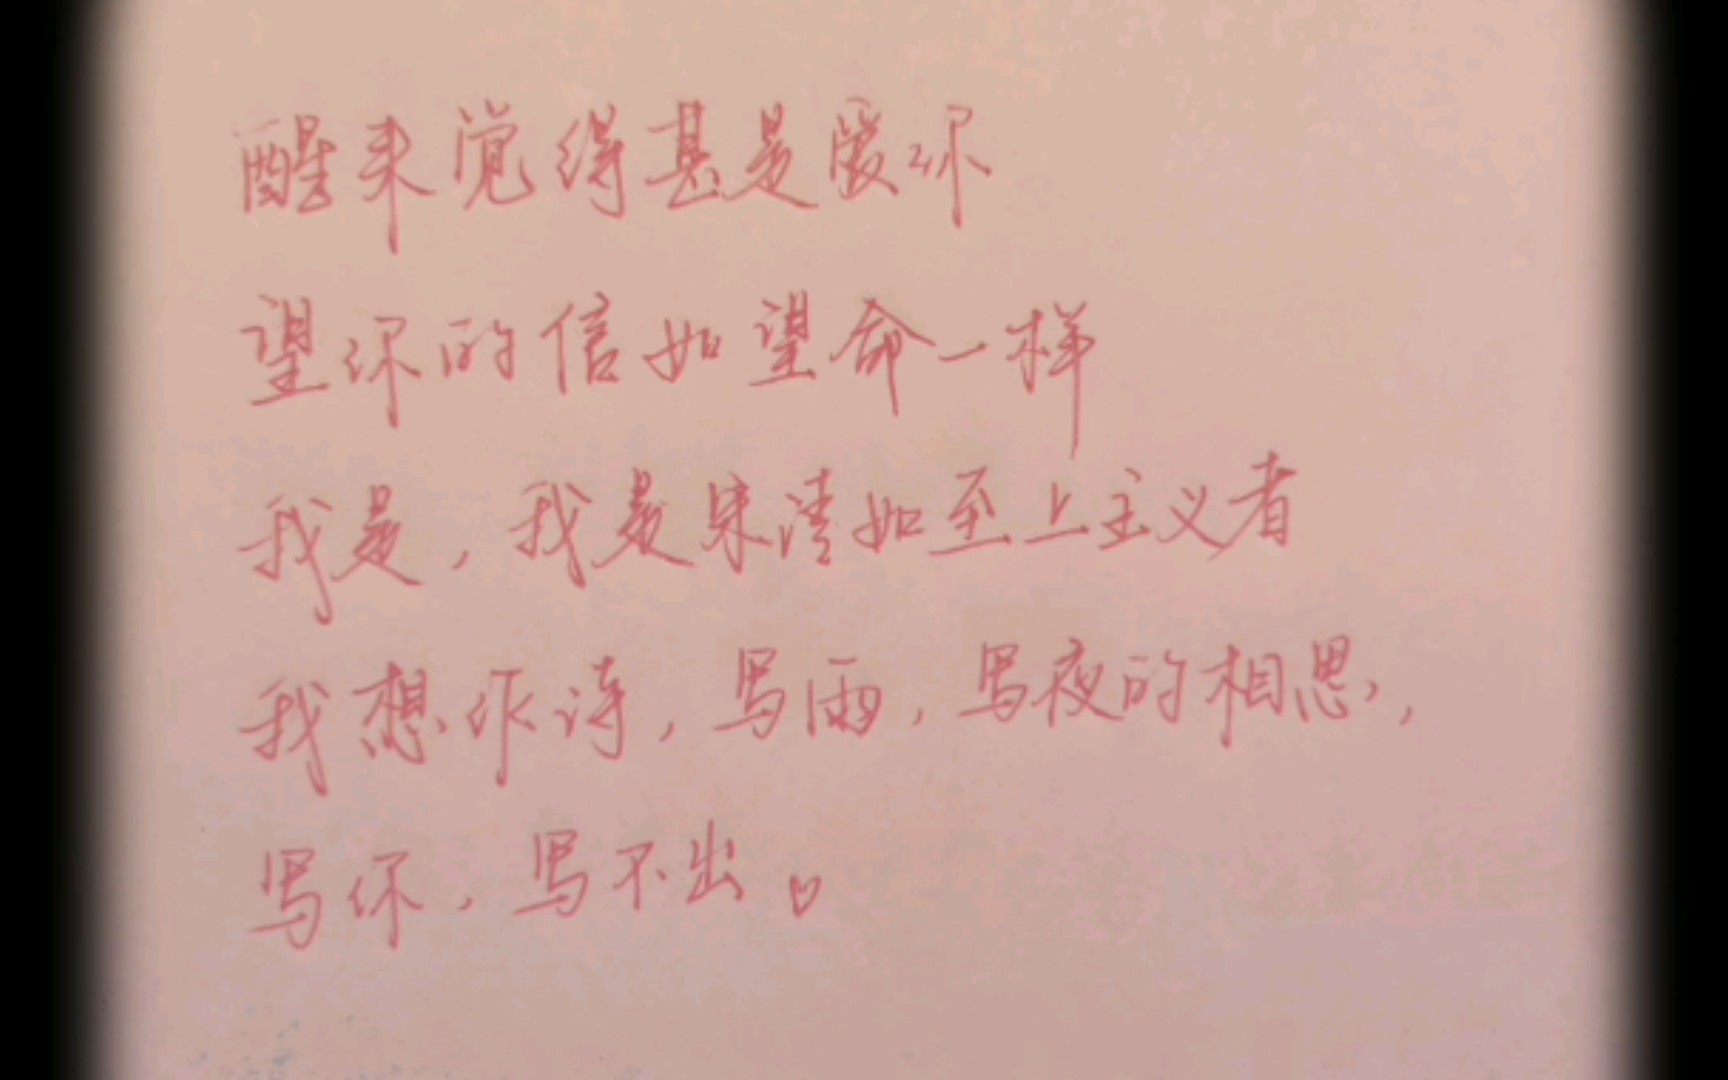 醒来觉得甚是爱你
望你的信如望命一样
我是，我是宋清如至上主义者
我想作诗，写雨，写夜的相思，
写你，写不出。